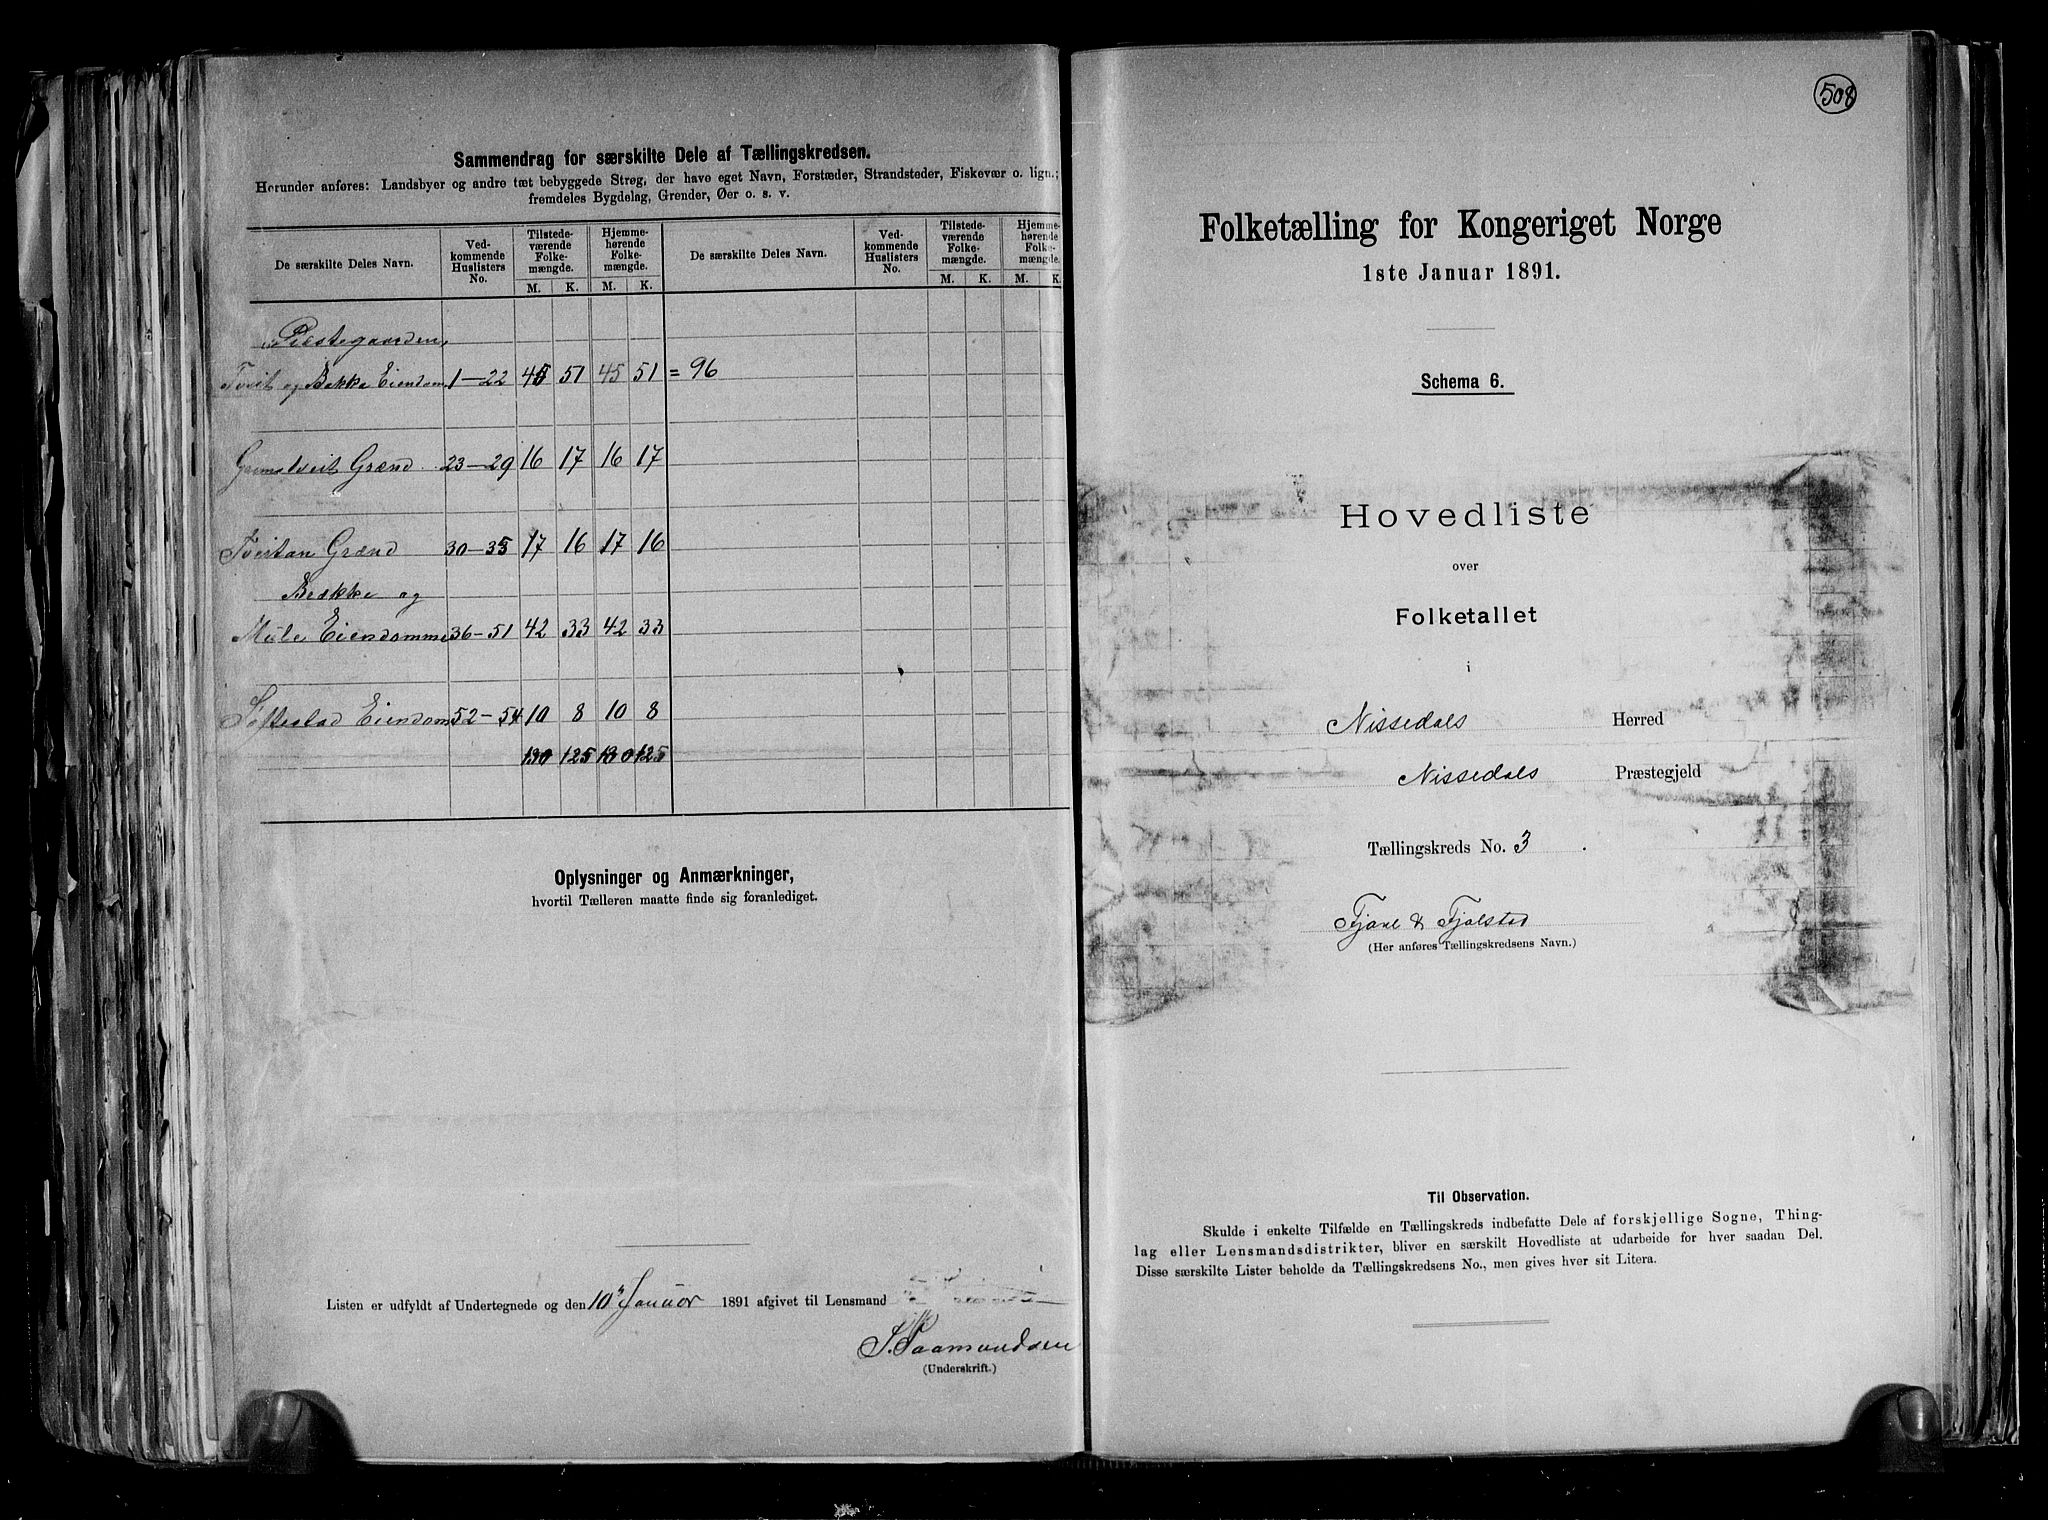 Sammendrag for særskilte Dele af Tællingskredsen.
Herunder anføres: Landsbyer og andre tæt bebyggede Strøg, der have eget Navn, Forstæder, Strandsteder, Fiskevær o. lign.;
fremdeles Bygdelag, Grender, Øer o. s. v.
De særskilte Deles Navn. Ved-kommende Huslisters No. Tilstede-værende Folke-mængde. Hjemme-hørende Folke-mængde. De særskilte Deles Navn. Ved-kommende Huslisters No. Tilstede-værende Folke-mængde. Hjemme-hørende Folke-mængde.
M. K. M. K. M. K. M. K.
Præstegaarden,
Tveit og Bakka Eiendom 1-22 45 51 45 51 = 96
Grænd 23-29 16 17 16 17
Tveitan Grænd 30-35 17 16 17 16
og
Mule Eiendomme 36-51 42 33 42 33
Eiendom 52-54 10 8 10 8
130 125 130 125
Oplysninger og Anmærkninger,
hvortil Tælleren maatte finde sig foranlediget.
Listen er udfyldt af Undertegnede og den 10 Januar 1891 afgivet til Lensmand
S. Aamundsen
(Underskrift.)
508
Folketælling for Kongeriget Norge
1ste Januar 1891.
Schema 6.
Hovedliste
over
Folketallet
i
Nissedals Herred
Nissedals Præstegjeld
Tællingskreds No. 3.
Fjone & Fjalstad
(Her anføres Tællingskredsens Navn.)
Til Observation.
Skulde i enkelte Tilfælde en Tællingskreds indbefatte Dele af forskjellige Sogne, Thing-
lag eller Lensmandsdistrikter, bliver en særskilt Hovedliste at udarbeide for hver saadan Del.
Disse særskilte Lister beholde da Tællingskredsens No., men gives hver sit Litera.